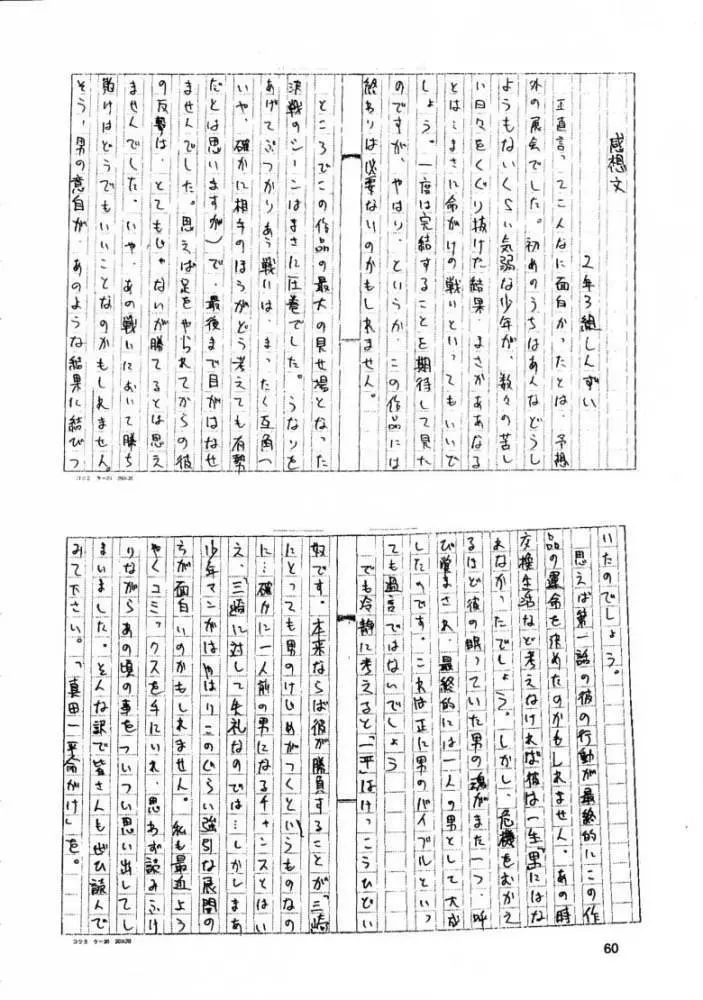 感想文
２年３組しんずい
正直言ってこんなに面白かったとは、予想
外の展会でした。初めのうちはあんなどうし
ようもないくらい気弱な少年が、数々の苦し
い日々をくぐり抜けた結果、まさかああなる
とは…まさに命がけの戦いといってもいいで
しょう。一度は完結することを期待して見た
のですが、やはり、というか、この作品には
終わりは必要ないのかもしれません。
ところでこの作品の最大の見せ場となった
決戦のシーンはまさに圧巻でした。うなりを
あげてぶつかりあう戦いは、まったく互角（
いや、確かに相手のほうがどう考えても有勢
だとは思いますが）で、最後まで目がはなせ
ませんでした。思えば足をやられてからの彼
の反勢は、とてもじゃないが勝てるとは思え
ませんでした。いや、あの戦いにおいて勝ち
負けはどうでもいいことなのかもしれません。
そう、男の意自が、あのような結果に結びつ
コクヨ ケー20 20×20
いたのでしょう。
思えば第一話の彼の行動が最終的にこの作
品の運命を決めたのかもしれません。あの時
交換生活など考えなければ彼は一生「男」にはな
れなかったでしょう。しかし、危機をむかえ
るほど彼の眠っていた男の魂がまた一つ、呼
び覚まされ、最終的には一人の男として大成
したのです。これは正に男のバイブルといっ
ても過言ではないでしょう
でも冷静に考えると「一平」はけっこうひどい
奴です。本来ならば彼が勝負することが「三崎」
にとっても男のけじめがつくというものなの
に…確かに一人前の男になるチャンスとはい
え、「三崎」に対して失礼なのでは…しかしまあ
少年マンガはやはりこのぐらい強引な展開の
ろが面白いのかもしれません。私も最近よう
やくコミックスを手にいれ、思わず読みふけ
りながらあの頃の事をついつい思い出してし
まいました。そんな訳で皆さんも是ひ読んで
みて下さい。「真田一平命がけ」を。
コクヨ ケー20 20×20
60